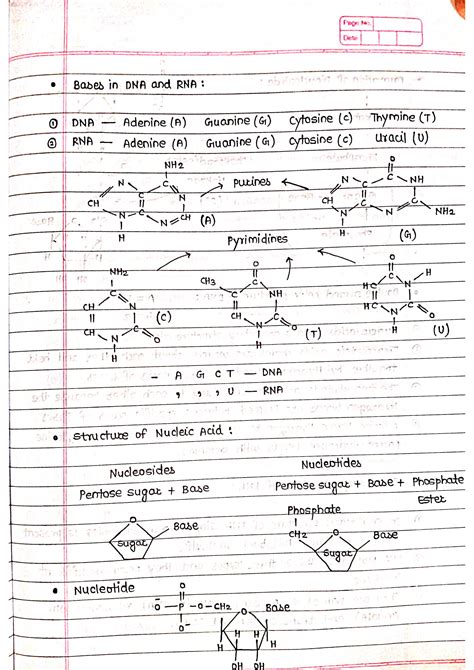 Page No.
Date
• Bases in DNA and RNA :
① DNA — Adenine (A) Guanine (G) Cytosine (C) Thymine (T)
② RNA — Adenine (A) Guanine (G) Cytosine (C) Uracil (U)
NH2
O
N C N
N C NH
CH C CH
CH C C
N N
N N NH2
H
H
(A)
← Purines →
(G)
Pyrimidines
NH2
O
O
CH3 C NH
C N
HC C N H
CH C
CH C
HC C
CH N O
N O
N O
H
H
H
(C)
(T)
(U)
– A G C T — DNA
, , , U — RNA
• Structure of Nucleic Acid :
Nucleosides
Pentose sugar + Base
Nucleotides
Pentose sugar + Base + Phosphate
Ester
Phosphate
O Base
CH2 O Base
Sugar
Sugar
• Nucleotide
O
O⁻ – P – O – CH2 O Base
O⁻
H H H H
OH OH